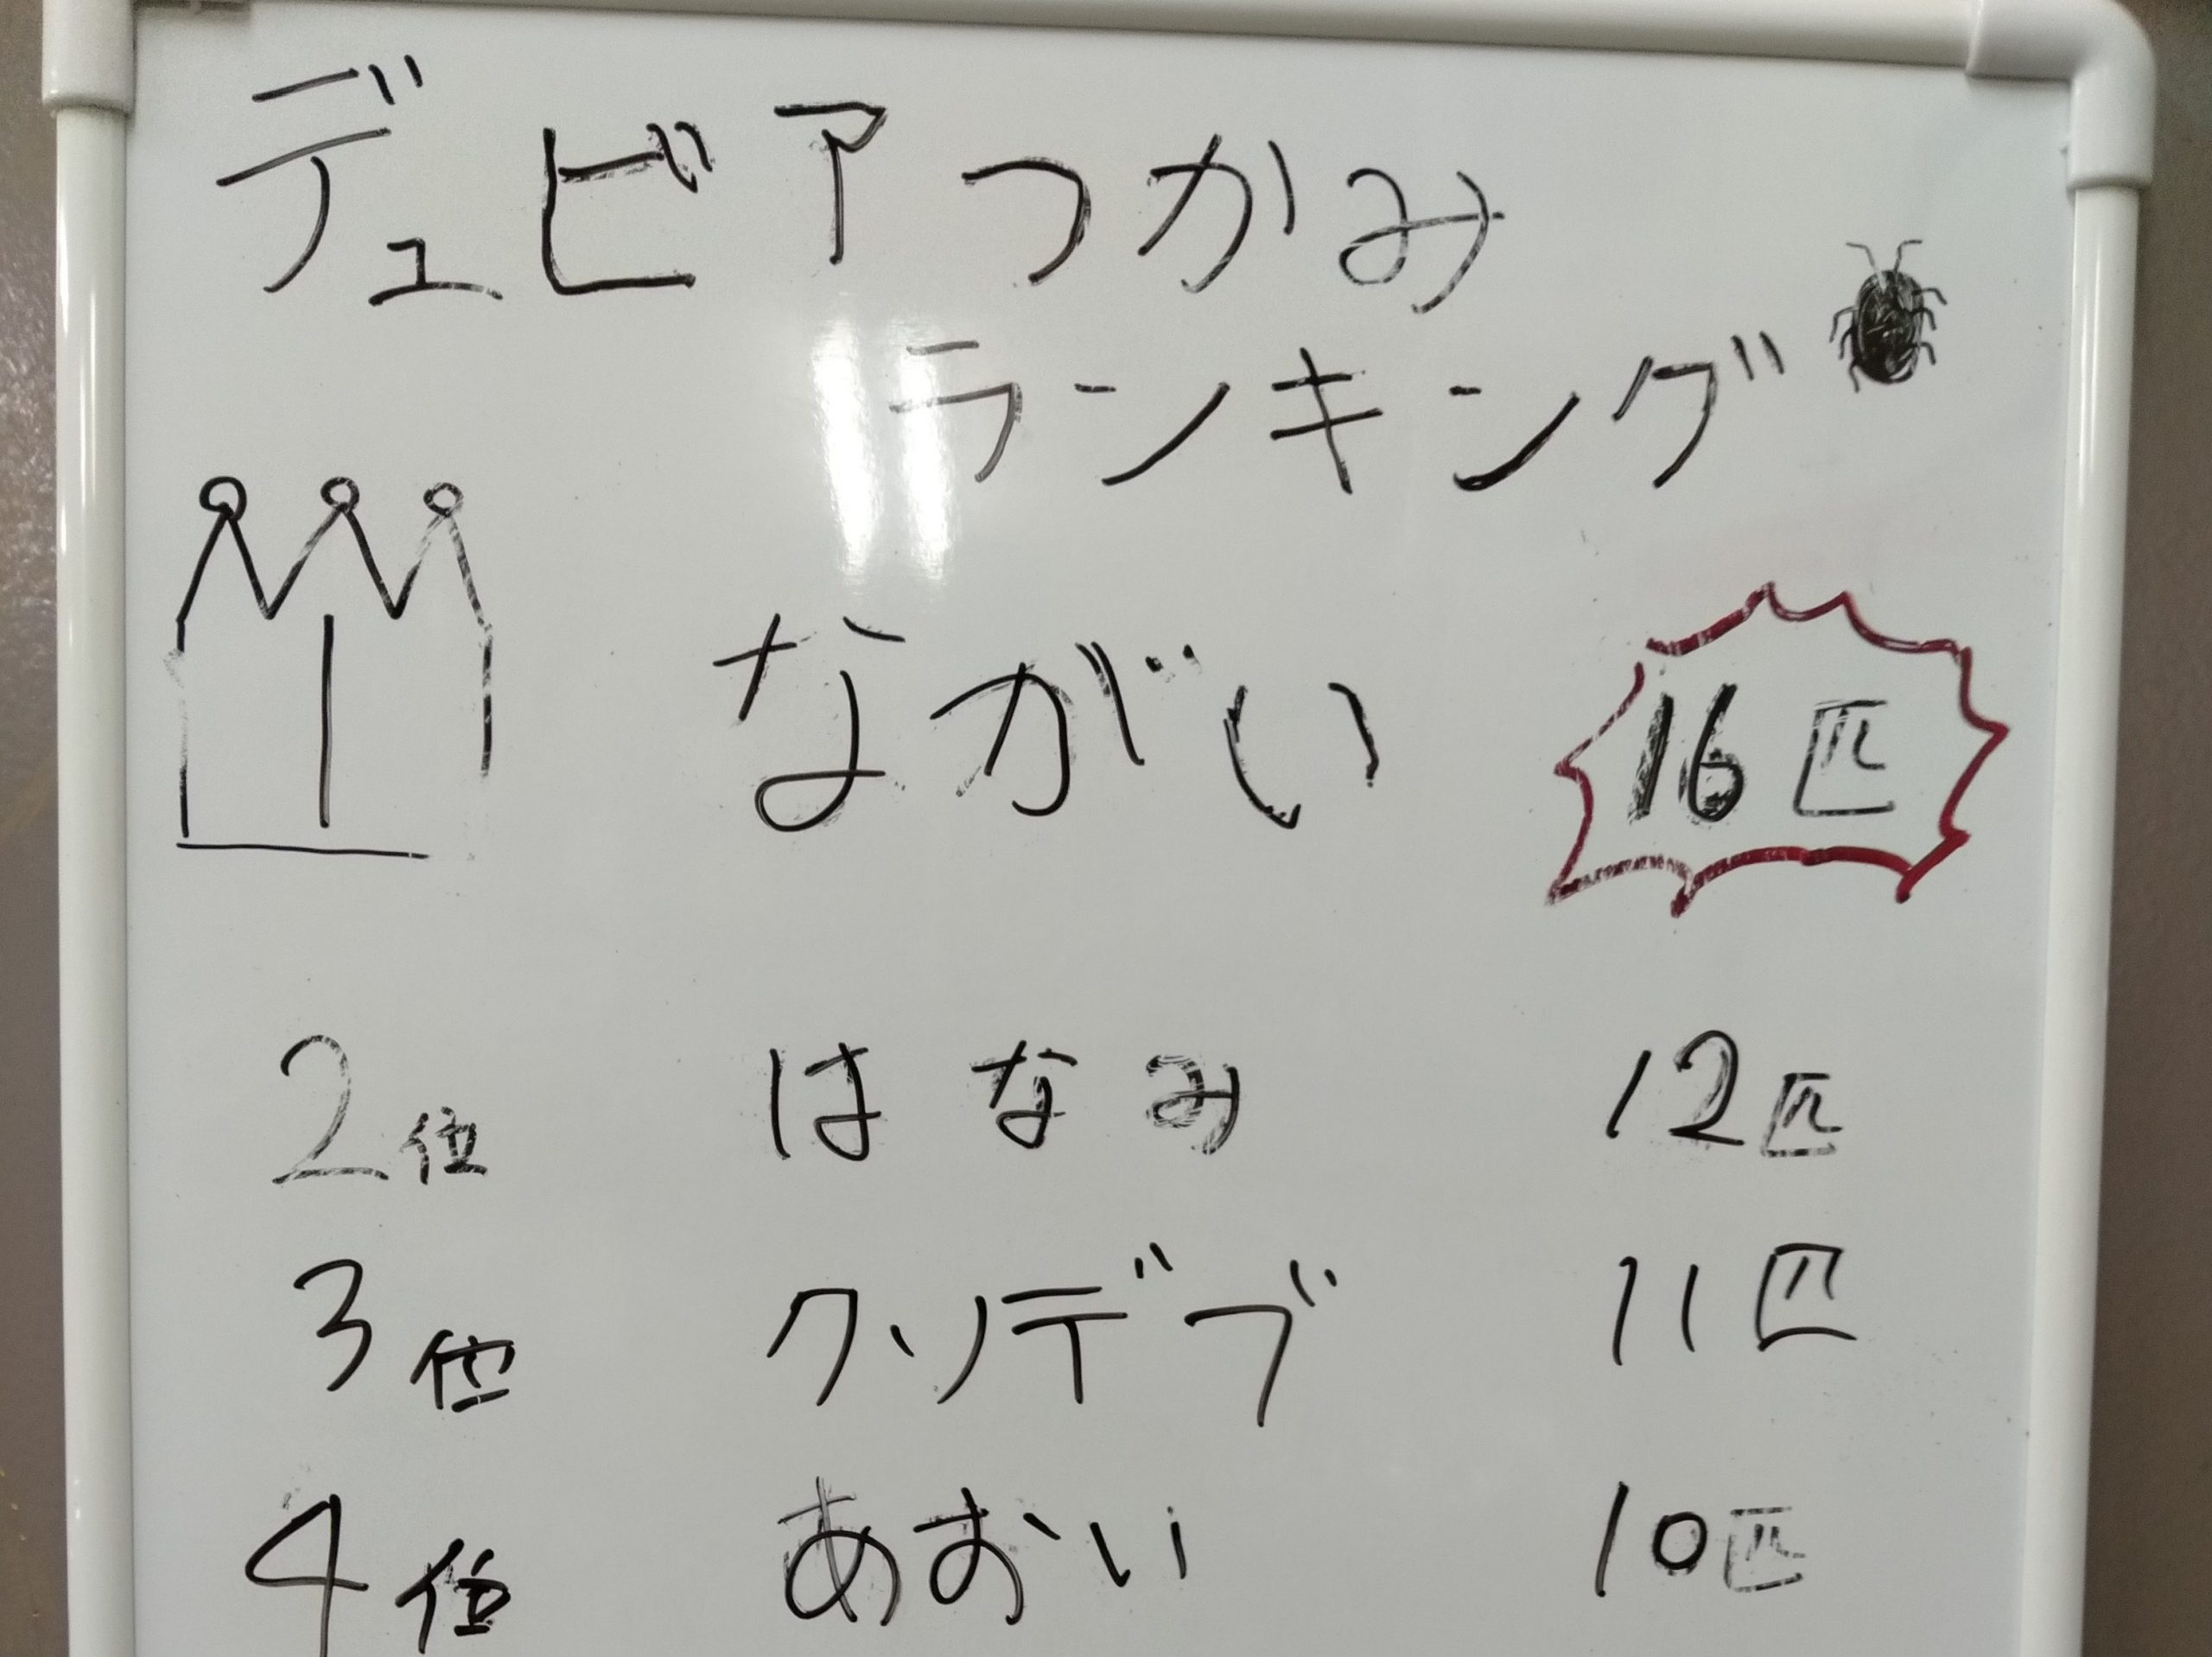 デュビアつかみ
ランキング
1 ながい 16匹
2位 はなみ 12匹
3位 クソデブ 11匹
4位 あおい 10匹